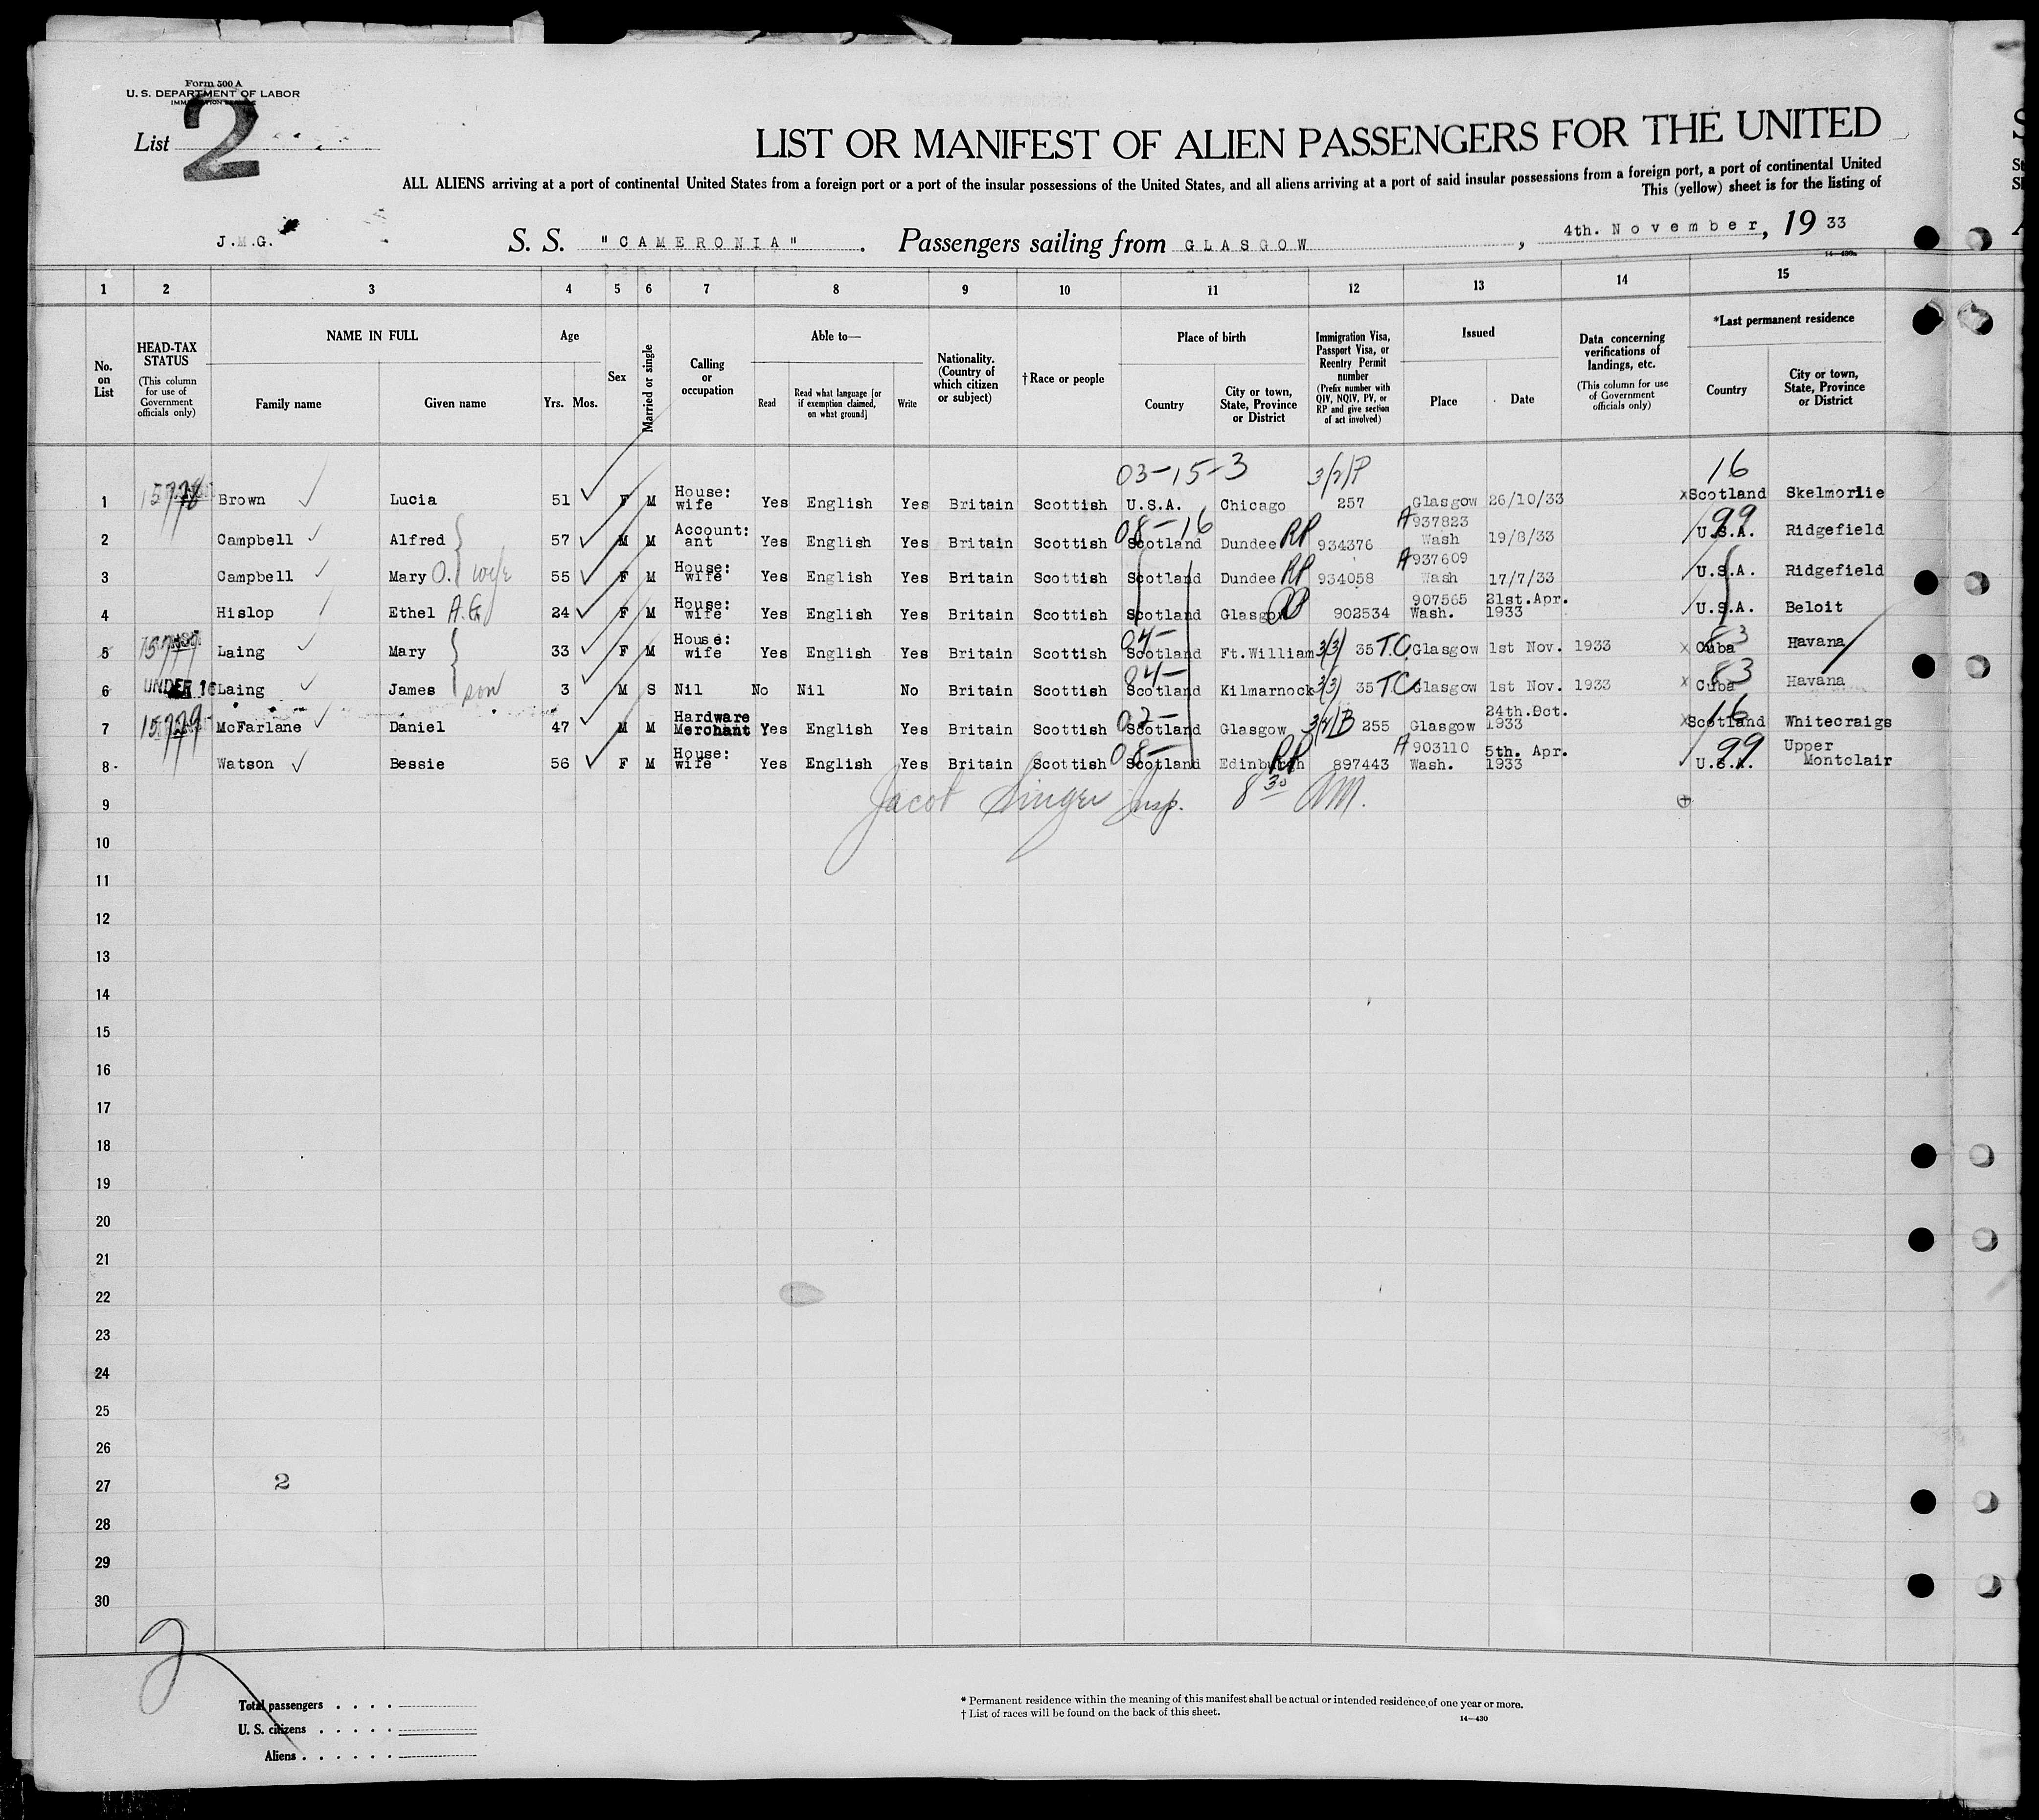 Form 500 A
U. S. DEPARTMENT OF LABOR
IMMIGRATION SERVICE
List 2
LIST OR MANIFEST OF ALIEN PASSENGERS FOR THE UNITED
ALL ALIENS arriving at a port of continental United States from a foreign port or a port of the insular possessions of the United States, and all aliens arriving at a port of said insular possessions from a foreign port, a port of continental United
This (yellow) sheet is for the listing of
J.M.G. S. S. "CAMERONIA". Passengers sailing from GLASGOW, 4th. November, 19 33
14—430a
1 2 3 4 5 6 7 8 9 10 11 12 13 14 15
No. on List
HEAD-TAX STATUS
(This column for use of Government officials only)
NAME IN FULL
Family name Given name
Age
Yrs. Mos.
Sex
Married or single
Calling or occupation
Able to—
Read
Read what language [or if exemption claimed, on what ground]
Write
Nationality. (Country of which citizen or subject)
†Race or people
Place of birth
Country
City or town, State, Province or District
Immigration Visa, Passport Visa, or Reentry Permit number
(Prefix number with QIV, NQIV, PV, or RP and give section of act involved)
Issued
Place Date
Data concerning verifications of landings, etc.
(This column for use of Government officials only)
*Last permanent residence
Country
City or town, State, Province or District
03-15-3 3/2/P 16
1 Brown Lucia 51 F M House: wife Yes English Yes Britain Scottish U.S.A. Chicago 257 Glasgow 26/10/33 xScotland Skelmorlie
08-16 99
2 Campbell Alfred 57 M M Account: ant Yes English Yes Britain Scottish Scotland Dundee RP 934376 A 937823 Wash 19/8/33 U.S.A. Ridgefield
3 Campbell Mary O. wife 55 F M House: wife Yes English Yes Britain Scottish Scotland Dundee RP 934058 A 937609 Wash 17/7/33 U.S.A. Ridgefield
4 Hislop Ethel A.G. 24 F M House: wife Yes English Yes Britain Scottish Scotland Glasgow RP 902534 907565 Wash. 21st.Apr. 1933 U.S.A. Beloit
04- 83
5 Laing Mary 33 F M House: wife Yes English Yes Britain Scottish Scotland Ft.William 3(3) 35 T.C. Glasgow 1st Nov. 1933 x Cuba Havana
04- 83
6 UNDER 16 Laing James son 3 M S Nil No Nil No Britain Scottish Scotland Kilmarnock 3(3) 35 T.C. Glasgow 1st Nov. 1933 x Cuba Havana
02- 16
7 McFarlane Daniel 47 M M Hardware Merchant Yes English Yes Britain Scottish Scotland Glasgow 3/2/B 255 Glasgow 24th.Oct. 1933 xScotland Whitecraigs
08- 99
8 Watson Bessie 56 F M House: wife Yes English Yes Britain Scottish Scotland Edinburgh RP 897443 A 903110 Wash. 5th. Apr. 1933 U.S.A. Upper Montclair
9 Jacob Singer Insp. 8 30 AM.
10
11
12
13
14
15
16
17
18
19
20
21
22
23
24
25
26
27 2
28
29
30
2
Total passengers . . . .
U. S. citizens . . . . .
Aliens . . . . . .
* Permanent residence within the meaning of this manifest shall be actual or intended residence of one year or more.
† List of races will be found on the back of this sheet.
14—430